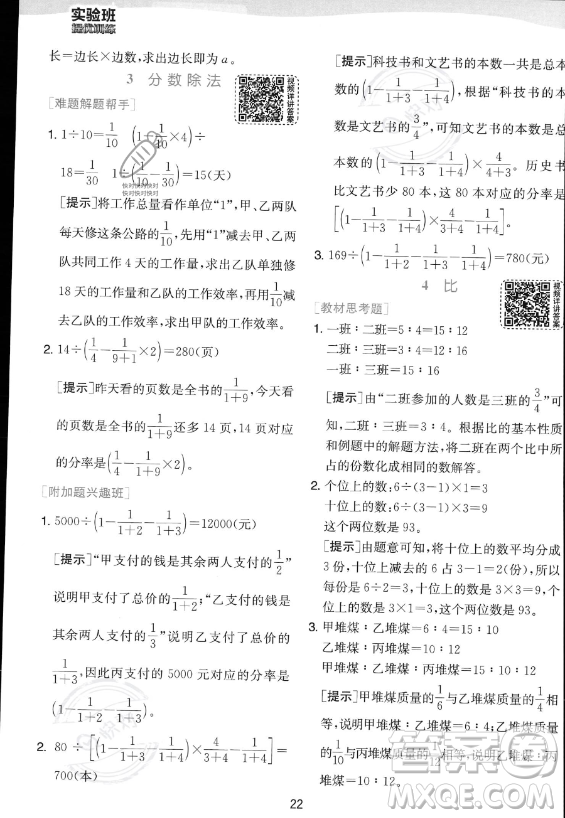 实验班
提优训练
长=边长×边数，求出边长即为a。
3 分数除法
视频详讲答案
[难题解题帮手]
1. 1÷10=1/10 (1-1/10×4)÷
18=1/30 1÷(1/10-1/30)=15(天)
快对快对快对
快对快对快对
[提示]将工作总量看作单位“1”，甲、乙两队
每天修这条公路的1/10，先用“1”减去甲、乙两
队共同工作4天的工作量，求出乙队单独修
18天的工作量和乙队的工作效率，再用1/10减
去乙队的工作效率，求出甲队的工作效率。
2. 14÷(1/4-1/(9+1)×2)=280(页)
[提示]昨天看的页数是全书的1/(1+9)，今天看
的页数是全书的1/(1+9)还多14页，14页对应
的分率是(1/4-1/(1+9)×2)。
[附加题兴趣班]
1. 5000÷(1-1/(1+2)-1/(1+3))=12000(元)
[提示]“甲支付的钱是其余两人支付的1/2”
说明甲支付了总价的1/(1+2)；“乙支付的钱是
其余两人支付的1/3”说明乙支付了总价的
1/(1+3)，因此丙支付的5000元对应的分率是
(1-1/(1+2)-1/(1+3))。
2. 80÷[(1-1/(1+3)-1/(1+4))×3/4-1/(1+4)]=
700(本)
[提示]科技书和文艺书的本数一共是总本
数的(1-1/(1+3)-1/(1+4))，根据“科技书的本
数是文艺书的3/4”，可知文艺书的本数是总
本数的(1-1/(1+3)-1/(1+4))×4/(3+4)。历史书
比文艺书少80本，这80本对应的分率是
[(1-1/(1+3)-1/(1+4))×4/(3+4)-1/(1+4)]。
3. 169÷(1-1/(1+2)-1/(1+3)-1/(1+4))=780(元)
4 比
视频详讲答案
[教材思考题]
1. 一班：二班=5：4=15：12
二班：三班=3：4=12：16
一班：三班=15：16
[提示]由“二班参加的人数是三班的3/4”可
知，二班：三班=3：4。根据比的基本性质
和例题中的解题方法，将二班在两个比中所
占的份数化成相同的数解答。
2. 个位上的数：6÷(3-1)×1=3
十位上的数：6÷(3-1)×3=9
这个两位数是93。
[提示]由题意可知，将十位上的数平均分成
3份，十位上的数减去的6占3-1=2(份)，所以
每份是6÷2=3，个位上的数是3×1=3，
十位上的数是3×3=9，这个两位数是93。
3. 甲堆煤：乙堆煤=6：4=15：10
乙堆煤：丙堆煤=10：12
甲堆煤：丙堆煤=15：12
[提示]甲堆煤质量的1/6与乙堆煤的1/4相
等，说明甲堆煤：乙堆煤=6：4；乙堆煤质量
的1/10与丙堆煤的1/12相等，说明乙堆煤：丙
堆煤=10：12。
22